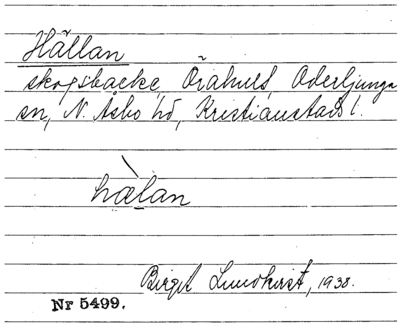 Hällan
skogsbacke, Örahult, Oderljunga
sn, N. Åsbo hd, Kristianstads l.
hàlan
Birgit Lundkvist, 1938.
Nr 5499.